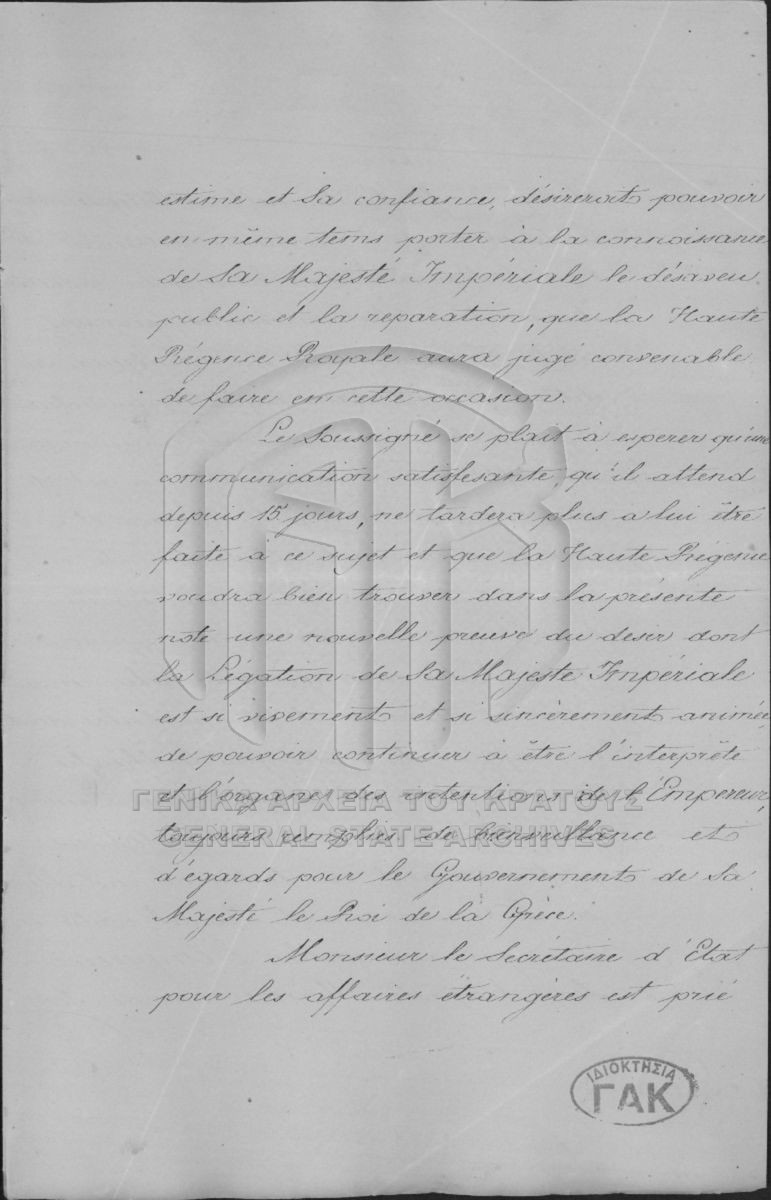 estime et Sa confiance, désireroit pouvoir
en même tems porter à la connoissance
de Sa Majesté Impériale le désaveu
public et la reparation, que la Haute
Régence Royale aura jugé convenable
de faire en cette occasion.
Le Soussigné se plait à esperer qu'une
communication satisfesante, qu'il attend
depuis 15 jours, ne tardera plus a lui être
faite à ce sujet et que la Haute Régence
voudra bien trouver dans la présente
note une nouvelle preuve du desir dont
la Légation de Sa Majeste Impériale
est si vivement et si sincèrement animée
de pouvoir continuer à être l'interprête
et l'organe des intentions de l'Empereur,
toujours remplies de bienveillance et
d'égards pour le Gouvernement de Sa
Majesté le Roi de la Grèce.
Monsieur le Secrétaire d'Etat
pour les affaires étrangères est prié
ΓΕΝΙΚΑ ΑΡΧΕΙΑ ΤΟΥ ΚΡΑΤΟΥΣ
GENERAL STATE ARCHIVES
ΙΔΙΟΚΤΗΣΙΑ
ΓΑΚ